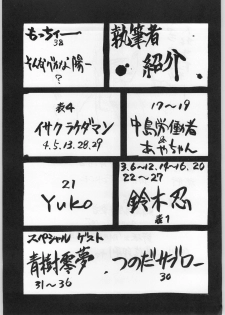 執筆者
紹介
もっちぃー
38
そんなバカな陽一
?
17〜19
中島労働者
&
あやちゃん
表4
イサクラケダマン
4.5.13.28.29
3.6〜12.14〜16.20
22〜27
鈴木忍
表1
21
Yuko
スペシャル ゲスト
青樹零夢
31〜36
つのだサブロー
30